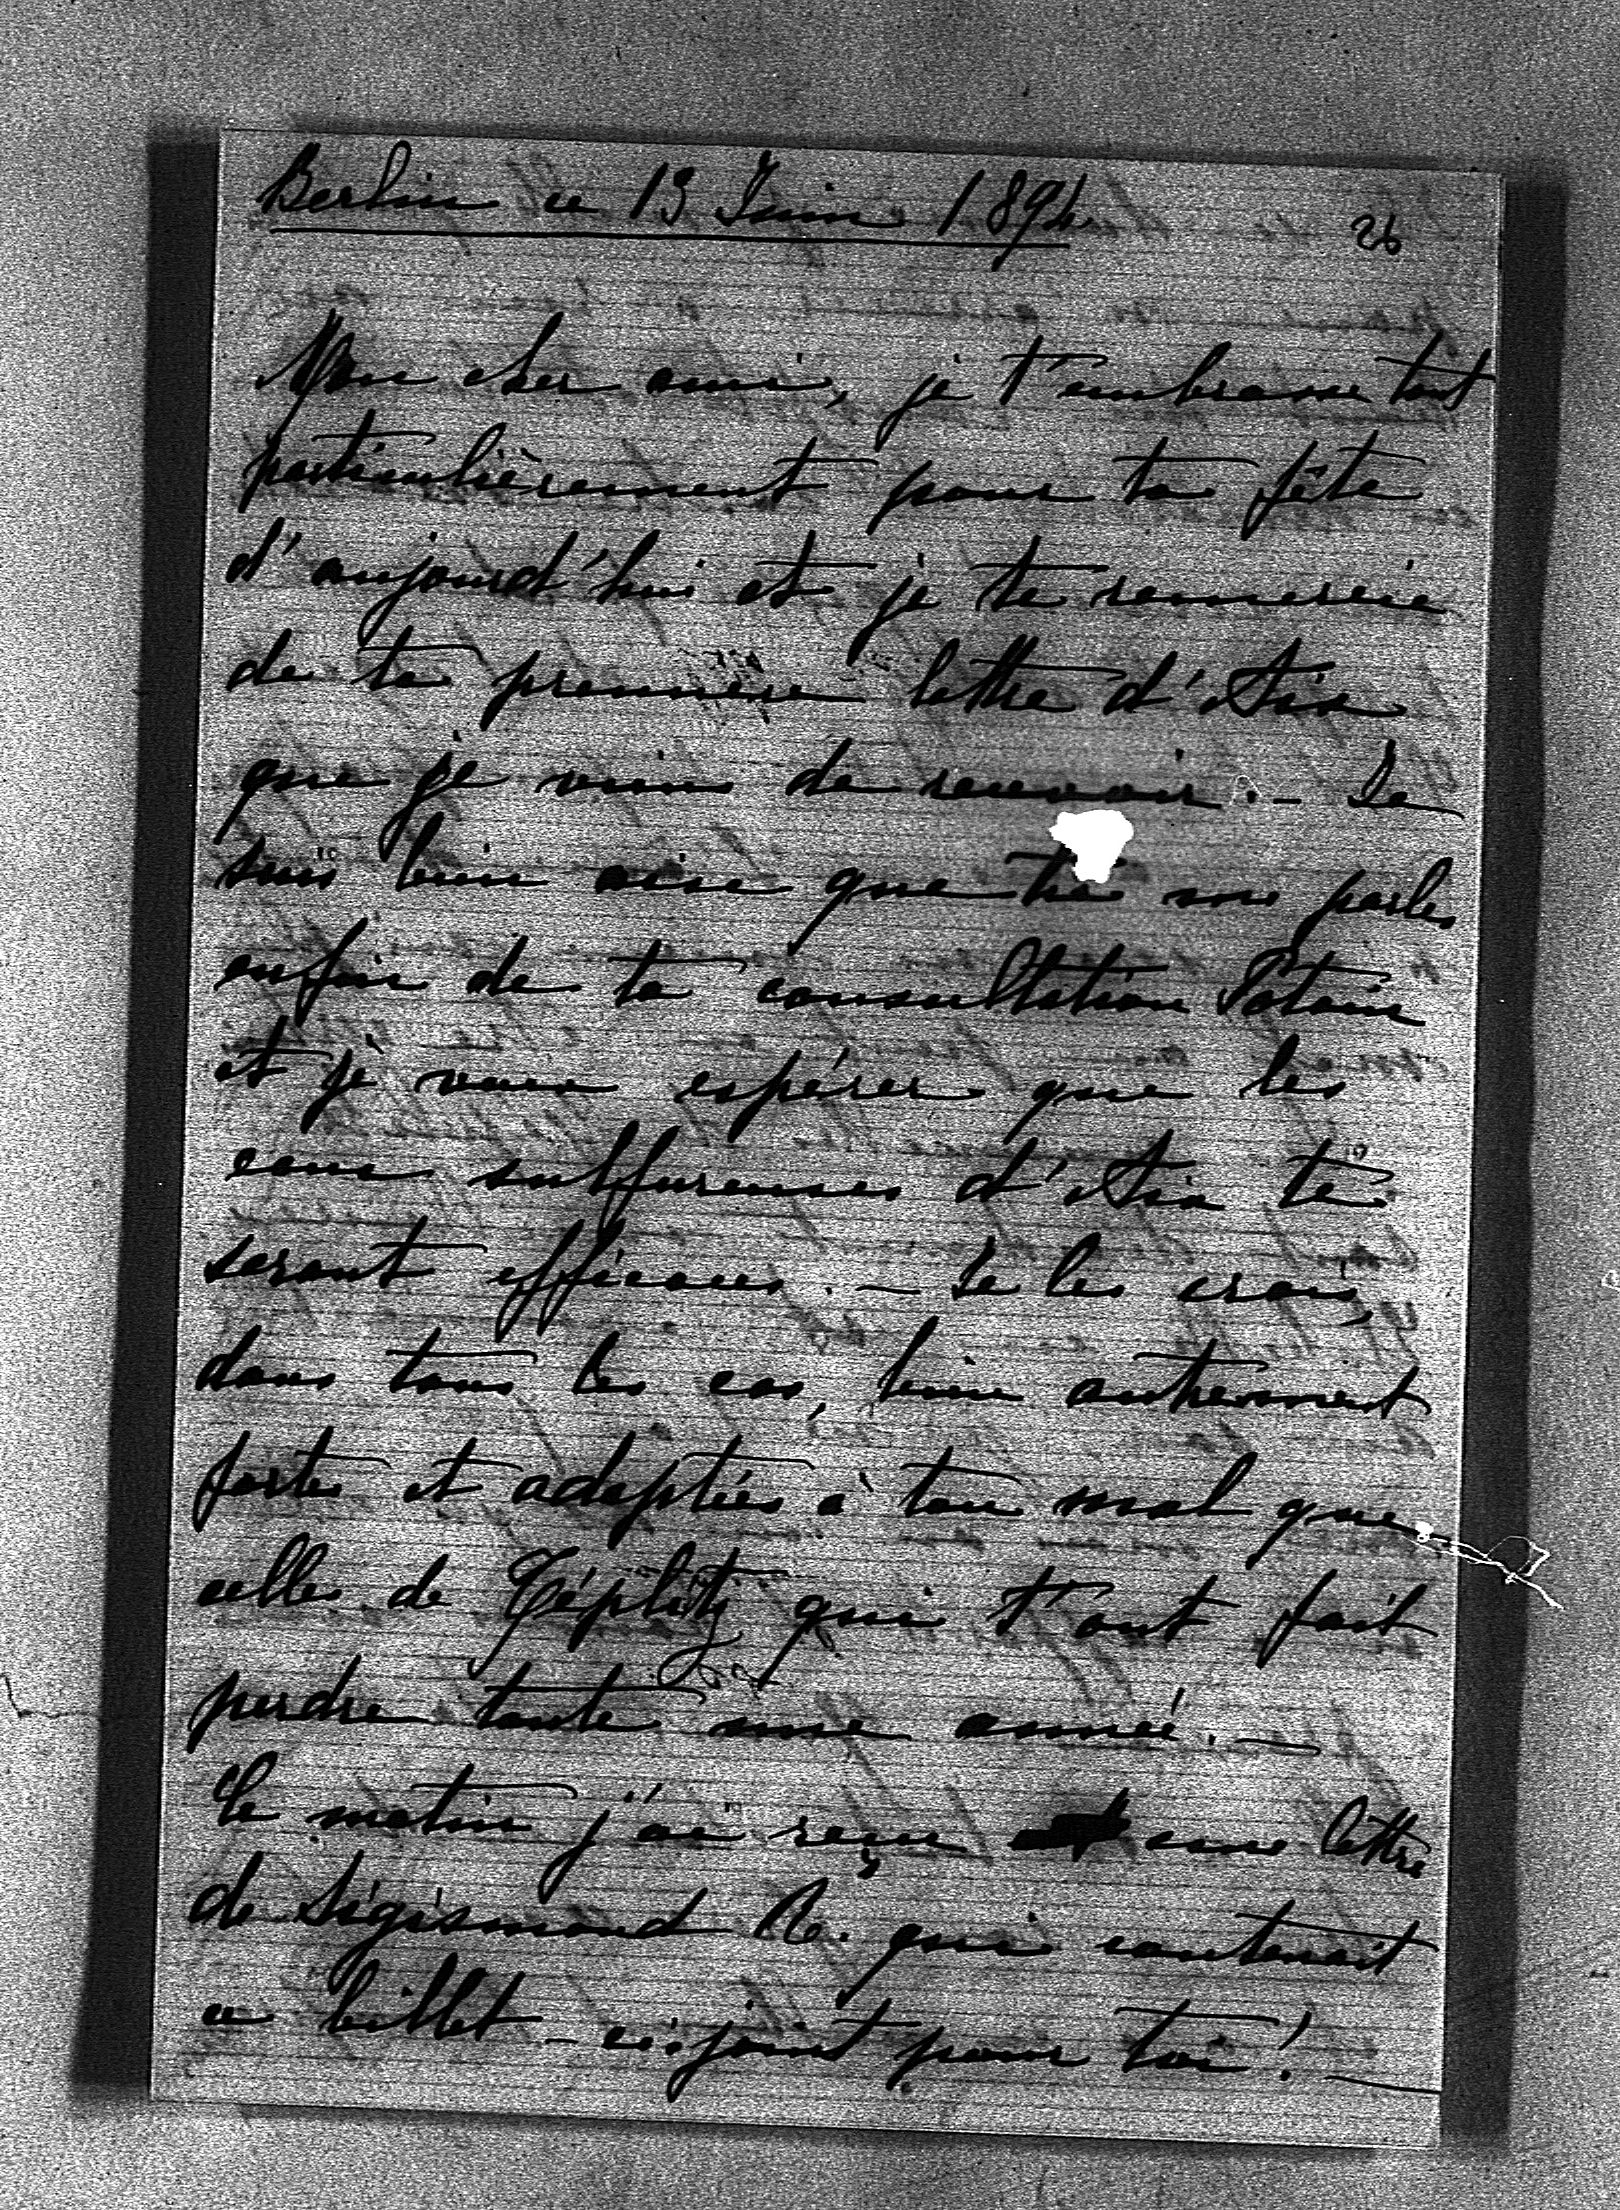 Berlin ce 13 Juin 1894
26
Mon cher ami, je t'embrasse tout
particulièrement pour ta fête
d'aujourd'hui et je te remercie
de ta première lettre d'Aix
que je viens de recevoir. – Je
suis bien aise que tu me parles
enfin de ta consultation Potain
et je veux espérer que les
eaux sulfureuses d'Aix te
seront efficaces. – Je les crois,
dans tous les cas, bien autrement
fortes et adaptées à ton mal que
celles de Téplitz qui t'ont fait
perdre toute une année. –
Ce matin j'ai reçu une lettre
de Sigismond R. qui contenait
ce billet – ci-joint pour toi! –